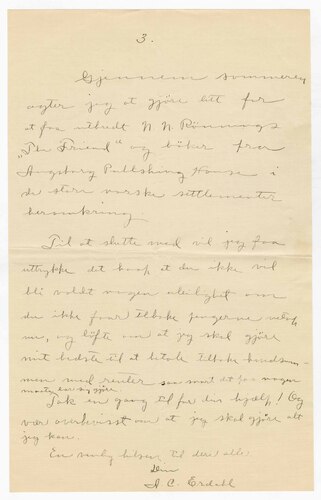 3.
Gjennem sommeren
agter jeg at gjöre litt for
at faa utbredt N. N. Rönnings
"The Friend" og böker fra
Augsburg Publishing House i
de store norske settlementer
heromkring.
Til at slutte med vil jeg faa
uttrykke det haab at du ikke vil
bli voldt nogen uleilighet om
du ikke faar tilbake pengene
nu, og löfte om at jeg skal gjöre
mit bedste til at betale tilbake
men med renter saa snart det paa nogen
maate lar sig gjöre.
Tak en gang til for din hjælp! Og
vær overbevist om at jeg skal gjöre alt
jeg kan.
En venlig hilsen til dere alle.
Din
A. C. Erdahl